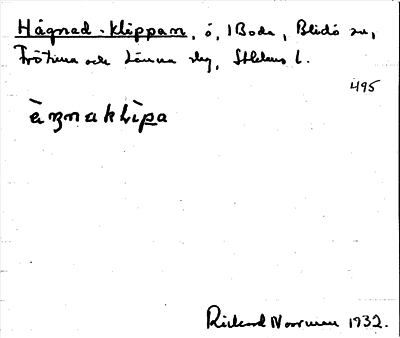 Hågnad-klippan, ö, 1 Boda, Blidö sn,
Frötuna och Länna skg, Sthlms l.
495
àŋnaklìpa
Rickard Norrman 1932.